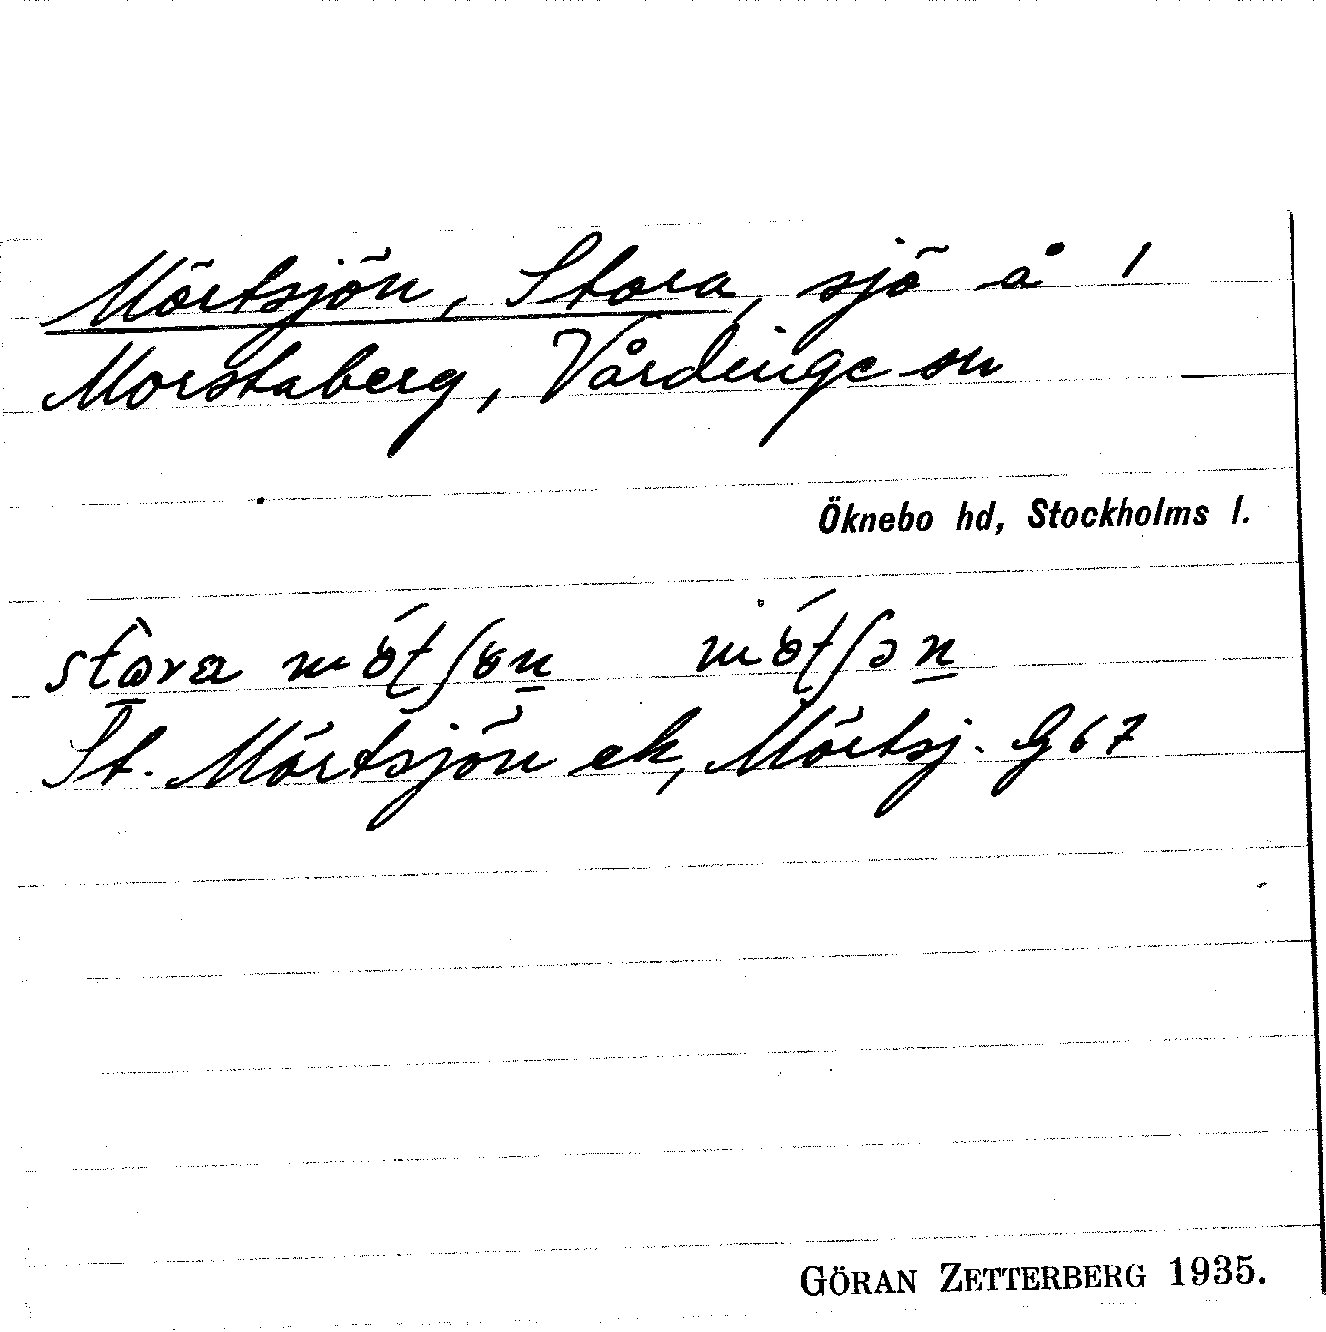 Mörtsjön, Stora, sjö å 1
Morstaberg, Vårdinge sn
Öknebo hd, Stockholms l.
St. Mörtsjön ek, Mörtsj. G 67
GÖRAN ZETTERBERG 1935.